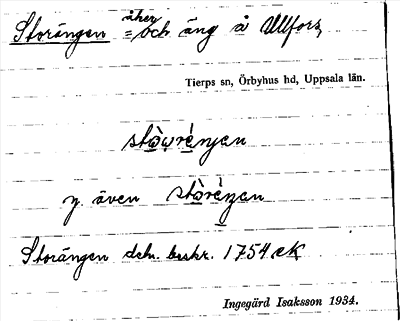 Storängen åker = och äng å Ullfors
Tierps sn, Örbyhus hd, Uppsala län.
stò̱ωré̱njen
y. även stò̱rè̱ŋen
Storängen deln. beskr. 1754 ek
Ingegärd Isaksson 1934.